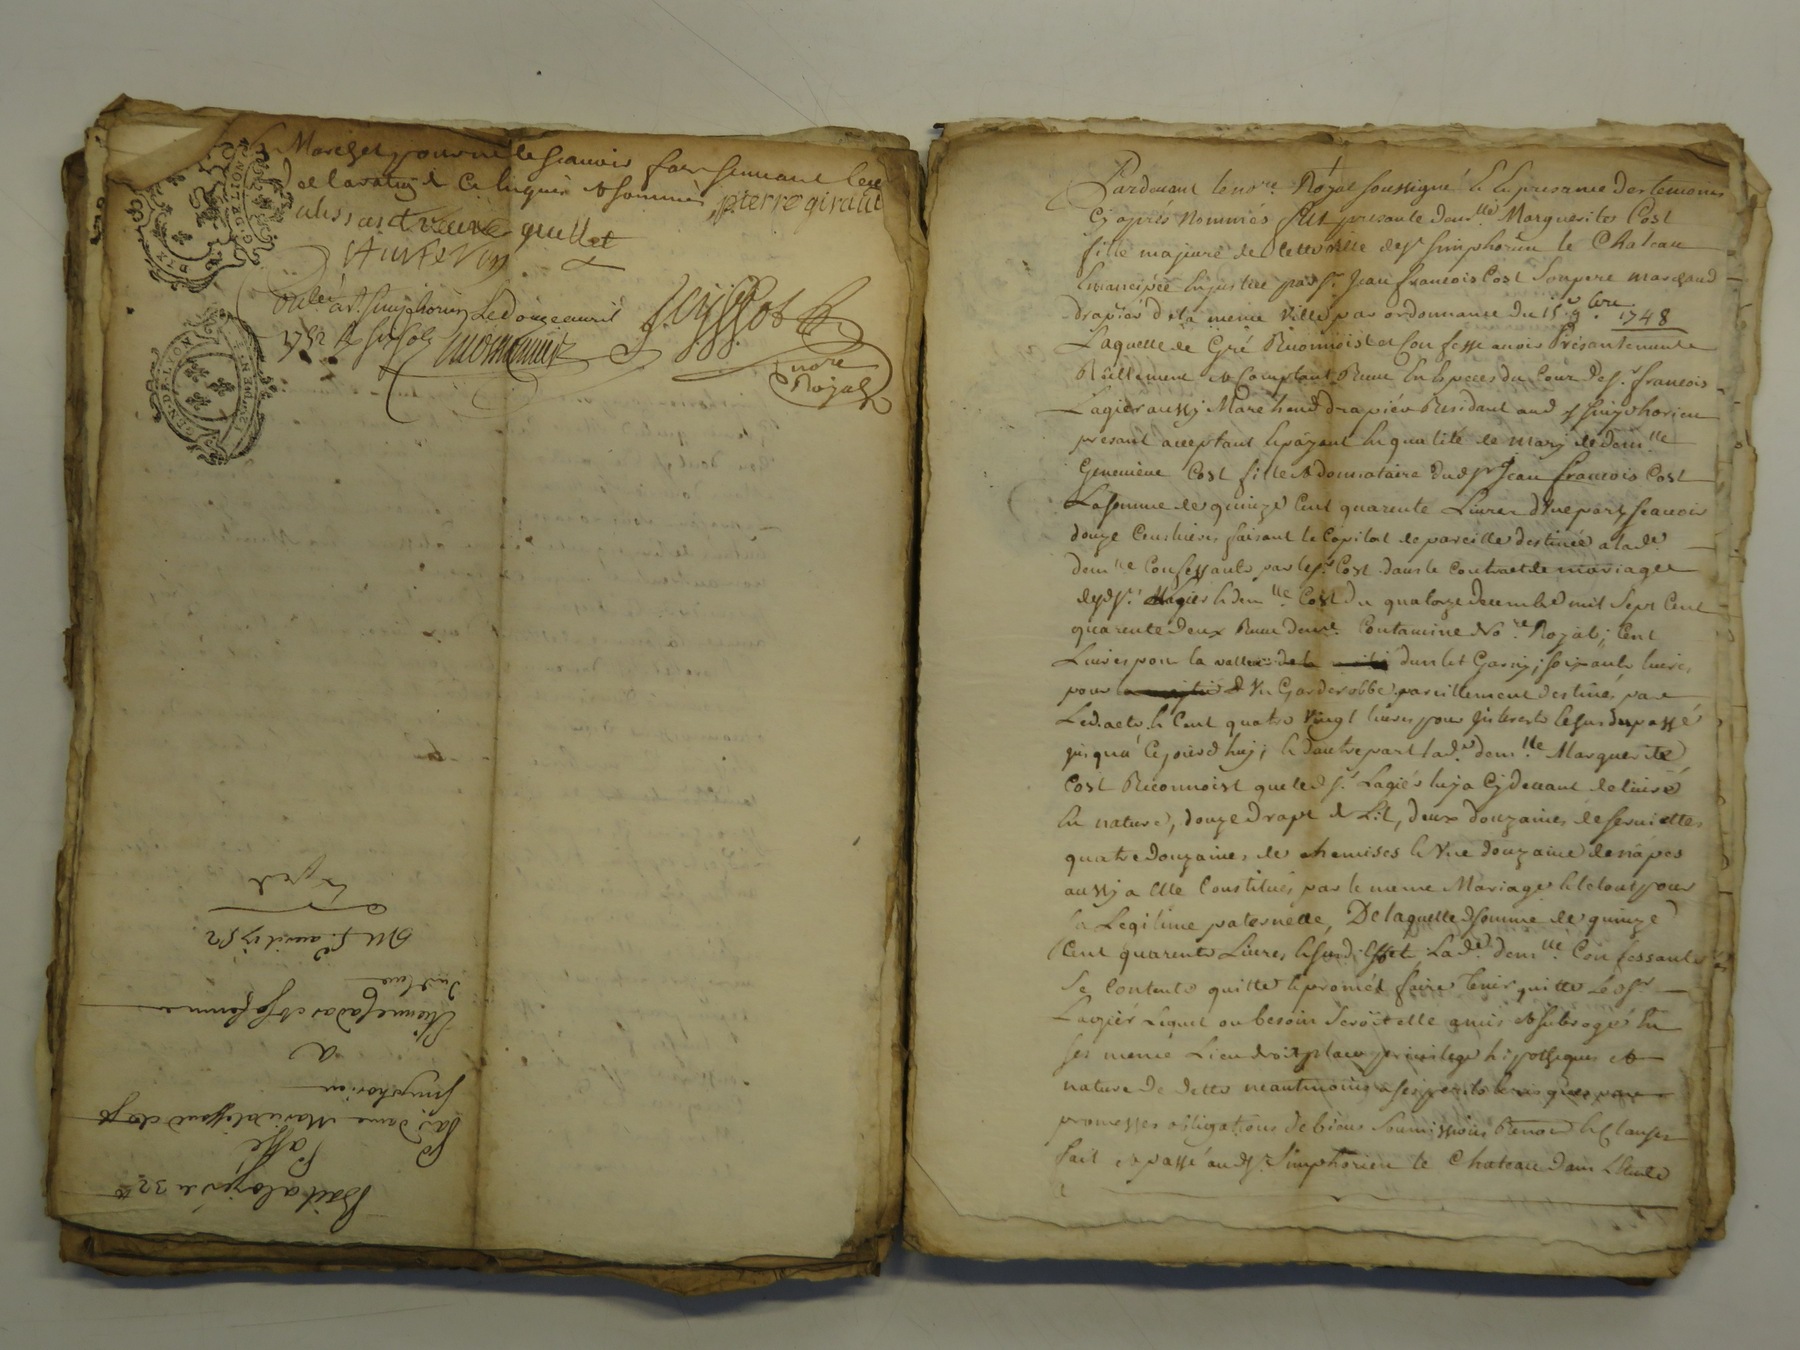 Marchet pour ne le scavoir fere
et la ratiff de ce enquis et sommés pierre giraud
quillet
a st Simphorien le douze avril
1752
Jeyssot
no.re
Royal
GEN. DE LYON
Bail a loyer de 32 tt
Passé
Par dame Marie
simphorien
a
Etienne Cadas et sa femme
Du avril 1752
Exped.
Pardevant le no.re Royal soussigné et en presance des temoins
Cy aprés nommés fut presante dem.lle Margueritte Cost
fille majeure de cette ville de S.t Simphorien le Chateau
Emancipée en justice par S.r Jean francois Cost son pere marchand
drapier de la meme ville par ordonnance du 15.e 9.bre 1748
Laquelle de Gré Reconnoist et Confesse avoir Présantement
Réellement et Comptant Receu en Espèces du Cour de S.r francois
Lagier aussy Marchand drapiér Residant aud. S.t Simphorien
présant acceptant et payant en qualité de mary de dem.lle
Genevieve Cost fille et donnataire dud. S.r Jean francois Cost
La somme de quinze Cent quarente Livres d'une part, scavoir
douze Cens livres faisant le Capital de pareille destinée a lad.e
dem.lle Confessante par led. S.r Cost dans le Contract de mariage
desd. S.r Lagier et dem.lle Cost du quatorze decembre mil Sept Cent
quarente deux Receu dev.t Contamine No.re Royal; Cent
Livres pour la valleur de d'un lit Garny; soixante livres
pour d'un Garderobbe pareillement destinés par
Led. acte et Cent quatre vingt livres pour Intérests le surdu passé
jusqua' Cejourd'huy; et d'autre part lad.e dem.lle Marguerite
Cost Reconnoist que led. S.r Lagiér luy a Cy devant delivré
En nature, douze drapt de Lit, deux douzaines de serviettes
quatre douzaines de chemises et une douzaine de napes
aussy a elle Constitués par le meme Mariage et le tout pour
la Legitime paternelle, De laquelle d. somme de quinze
Cent quarente Livres et susd. effet Lad.e dem.lle Confessante
se Contente quitte et promet faire tenir quitte Led. S.r
Lagiér Lequel ou besoin seroit elle a mis et subrogé En
ses meme Lieu droit place privilege hipotheques et
nature de dette neantmoins a ses perils et risques par
promesses obligations de biens soumissions Renon.d et Clauses
fait et passé aud. S.t Simphorien le Chateau dans L'Etude